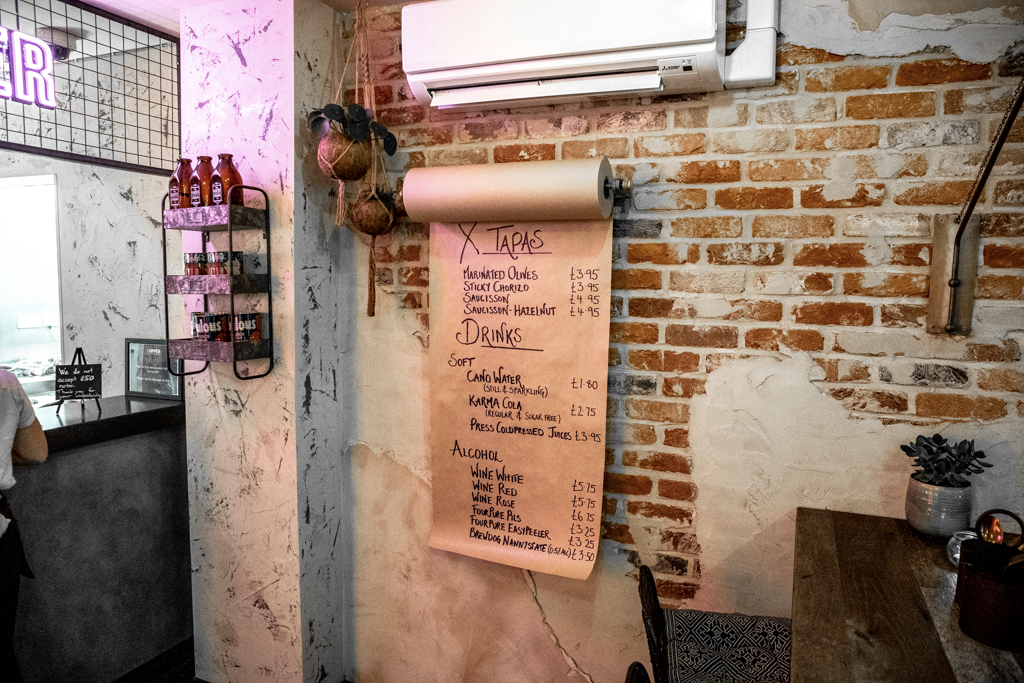 ER
We do not
accept £50
notes.
X TAPAS
MARINATED OLIVES £3.95
STICKY CHORIZO £3.95
SAUCISSON £4.95
SAUCISSON-HAZELNUT £4.95
DRINKS
SOFT
CANO WATER £1.80
(STILL & SPARKLING)
KARMA COLA £2.75
(REGULAR & SUGAR FREE)
PRESS COLDPRESSED JUICES £3.95
ALCOHOL
WINE WHITE £5.75
WINE RED £5.75
WINE ROSE £6.75
FOURPURE PILS £3.25
FOURPURE EASYPEELER £3.25
BREWDOG NANNYSTATE (0.5% Alc) £3.50